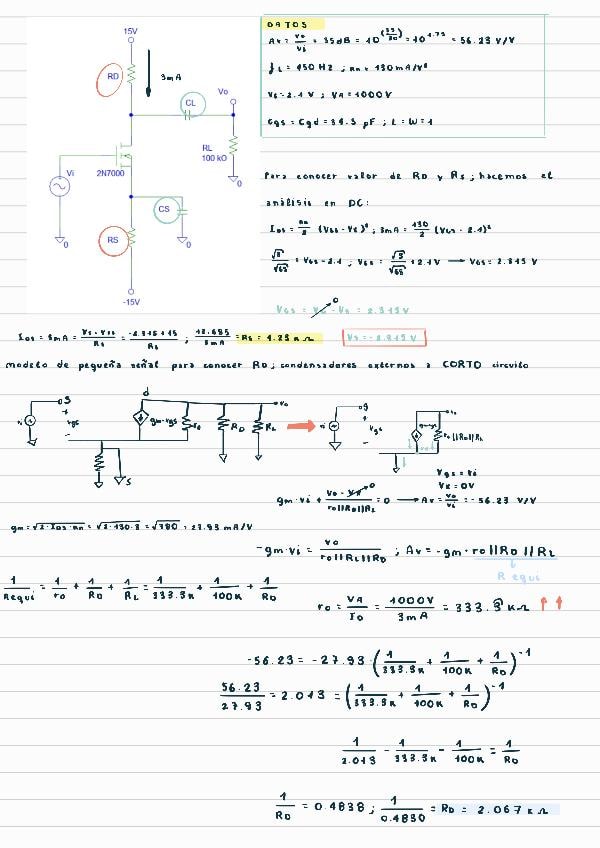 15V
RD
3mA
CL
Vo
RL
100 kΩ
0
Vi
2N7000
CS
0
0
RS
-15V
DATOS
Av = vo/vi = 35dB = 10^(35/20) = 10^1.75 = 56.23 V/V
fL = 450 Hz ; kn = 130mA/V²
Vt = 2.1 V ; VA = 1000V
Cgs = Cgd = 34.5 pF ; L = W = 1
Para conocer valor de RD y RS ; hacemos el
análisis en DC:
IDS = kn/2 (VGS - Vt)² ; 3mA = 130/2 (VGS - 2.1)²
√3/√65 = VGS - 2.1 ; VGS = √3/√65 + 2.1V → VGS = 2.315 V
VGS = VG - VS = 2.315V
0
IDS = 3mA = VS - VSS / RS = -2.315+15 / RS ; 12.685/3mA = RS = 4.23 kΩ
VS = -2.315V
modelo de pequeña señal para conocer RD ; condensadores externos a CORTO circuito
g d vo
vi + vgs - gm·vgs ro RD RL
S
g vo
vi + vgs - gm·vgs ro||RD||RL
Vgs = Vi
Vx = 0V
gm·vi + vo - vx / ro||RD||RL = 0 → Av = vo/vi = -56.23 V/V
0
gm = √2·IDS·kn = √2·130·3 = √780 = 27.93 mA/V
-gm·vi = vo / ro||RL||RD ; Av = -gm·ro||RD||RL
R equi
1/Requi = 1/ro + 1/RD + 1/RL = 1/333.3k + 1/100k + 1/RD
ro = VA/ID = 1000V/3mA = 333.3 kΩ ↑ ↑
-56.23 = -27.93 · (1/333.3k + 1/100k + 1/RD)^-1
56.23/27.93 = 2.013 = (1/333.3k + 1/100k + 1/RD)^-1
1/2.013 - 1/333.3k - 1/100k = 1/RD
1/RD = 0.4838 ; 1/0.4830 = RD = 2.067 kΩ